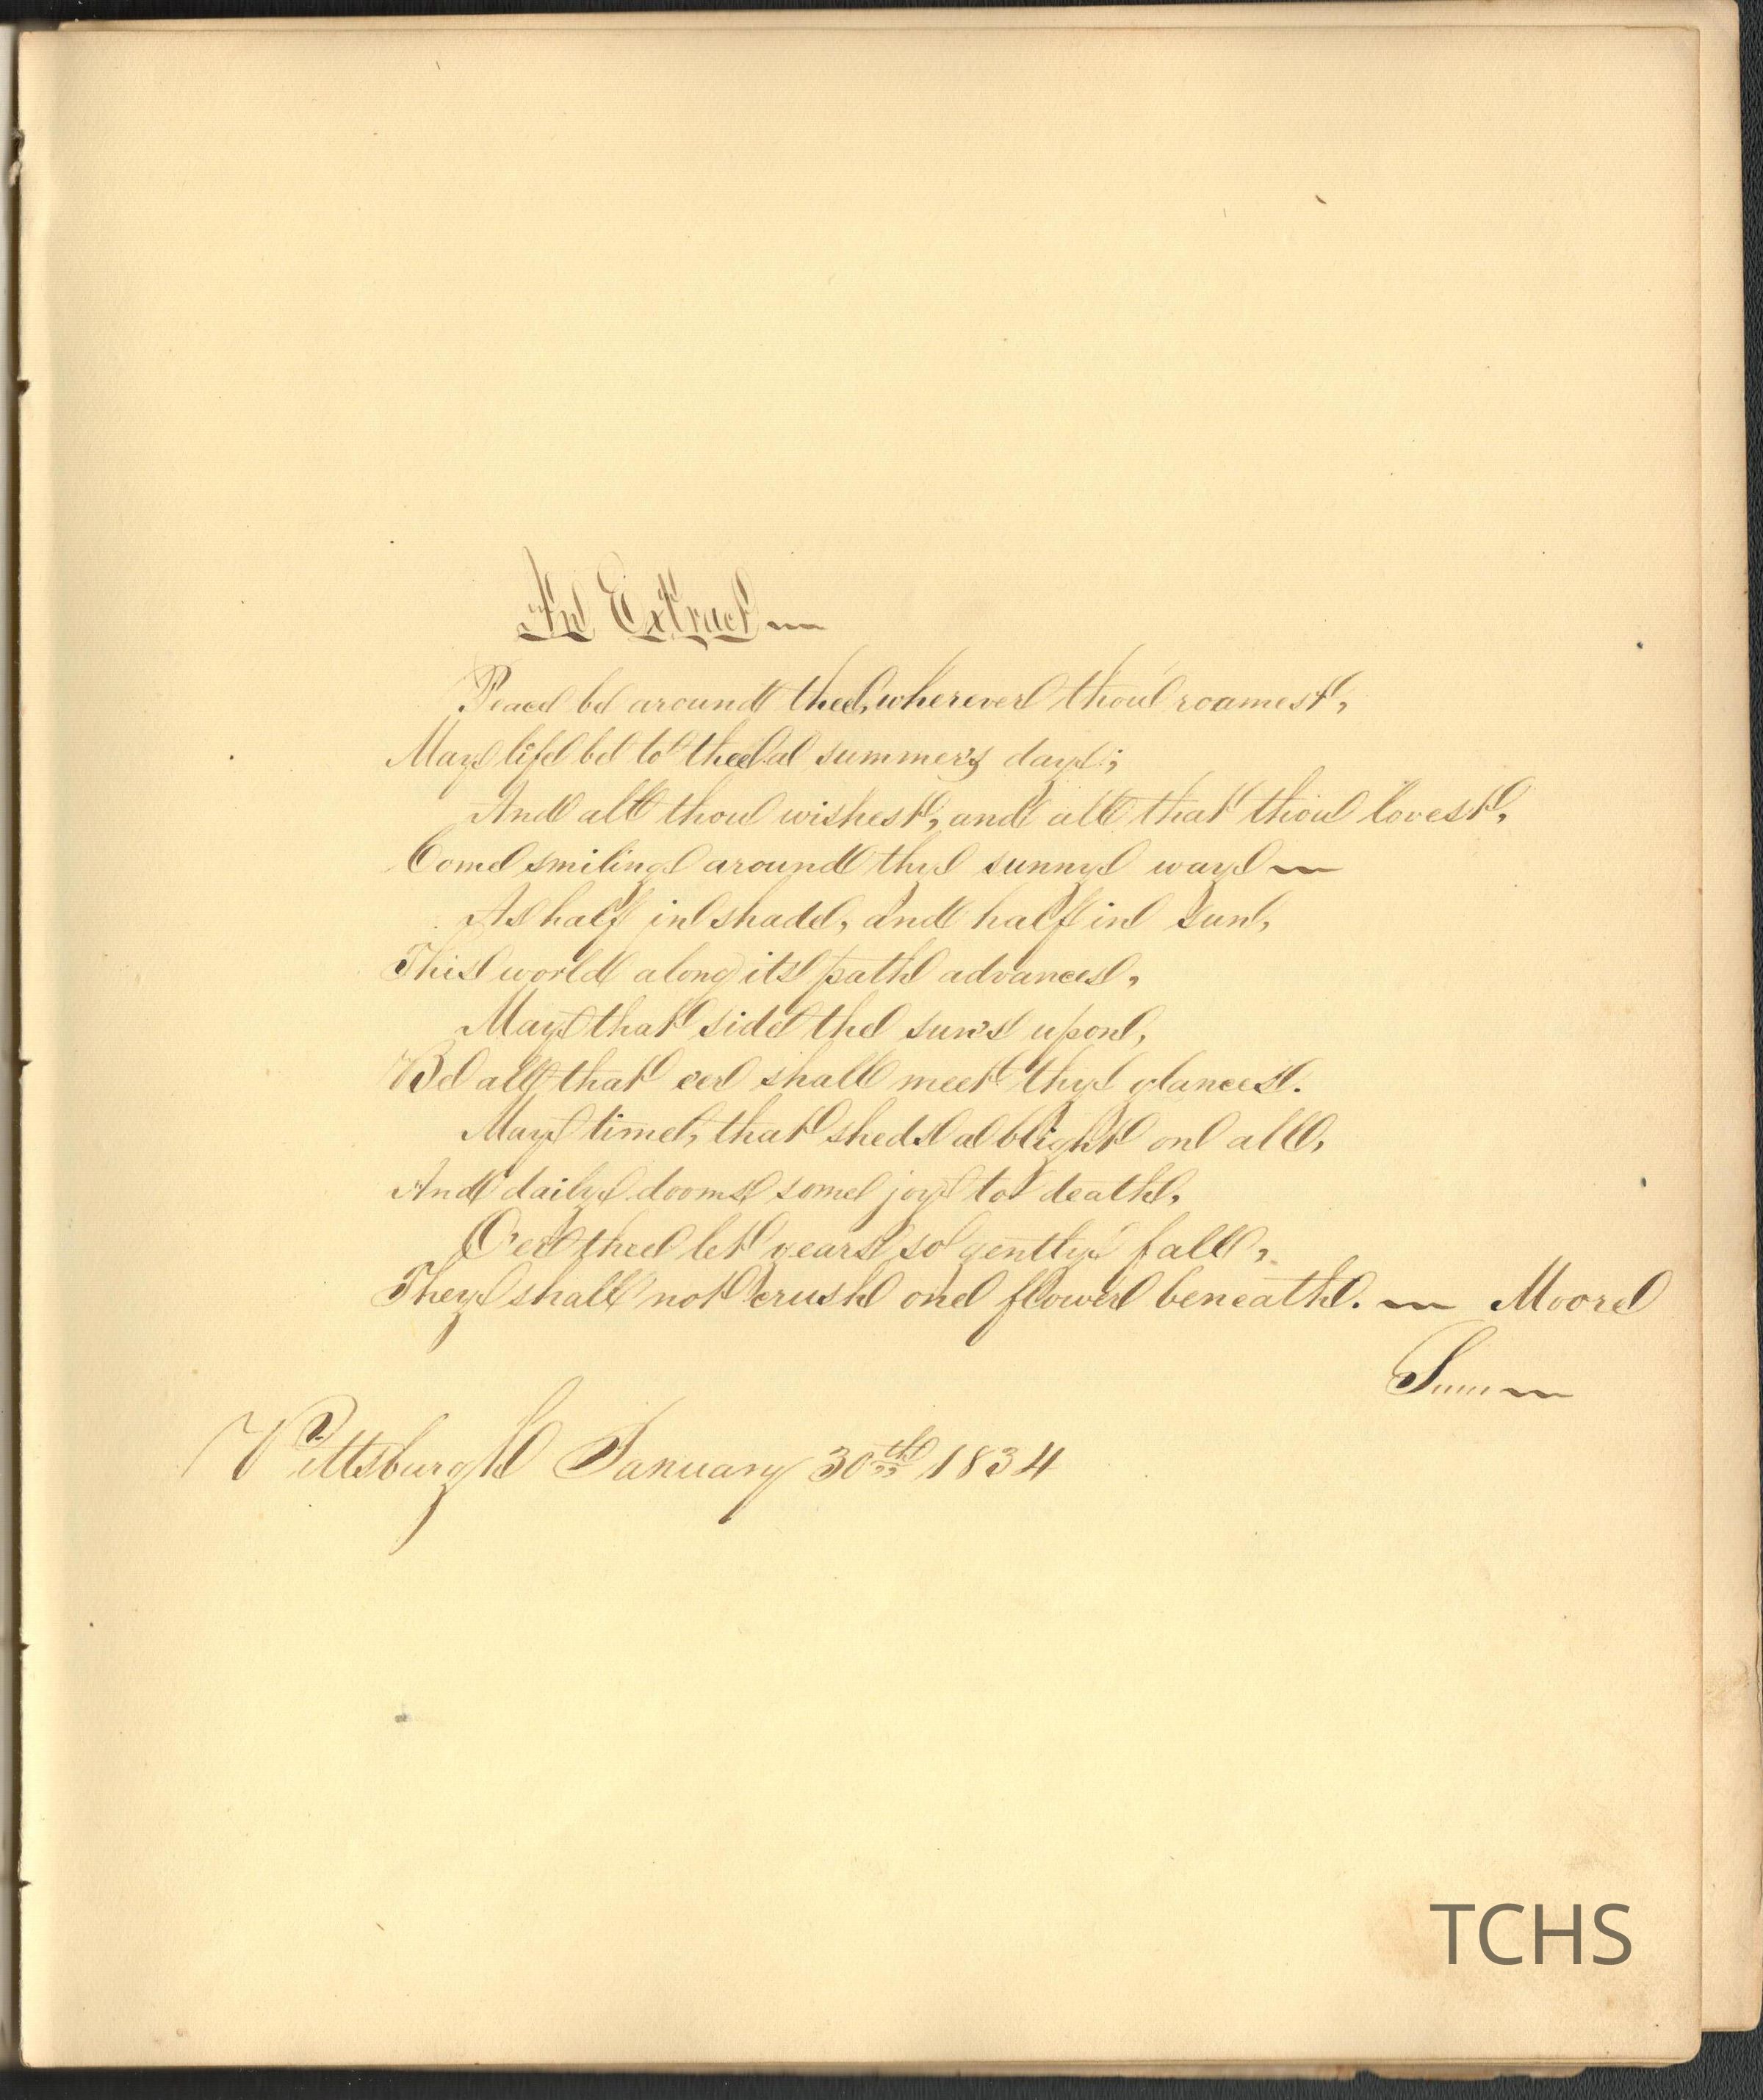 An Extract —
Peace be around thee, wherever thou roamest,
May life be to thee a summer's day;
And all thou wishest, and all that thou lovest,
Come smiling around thy sunny way —
As half in shade, and half in sun,
This world along its path advances,
May that side the sun's upon,
Be all that e'er shall meet thy glances.
May time, that sheds a blight on all,
And daily dooms some joy to death,
O'er thee let years so gently fall,
They shall not crush one flower beneath. — Moore
Pittsburgh January 30th 1834
TCHS